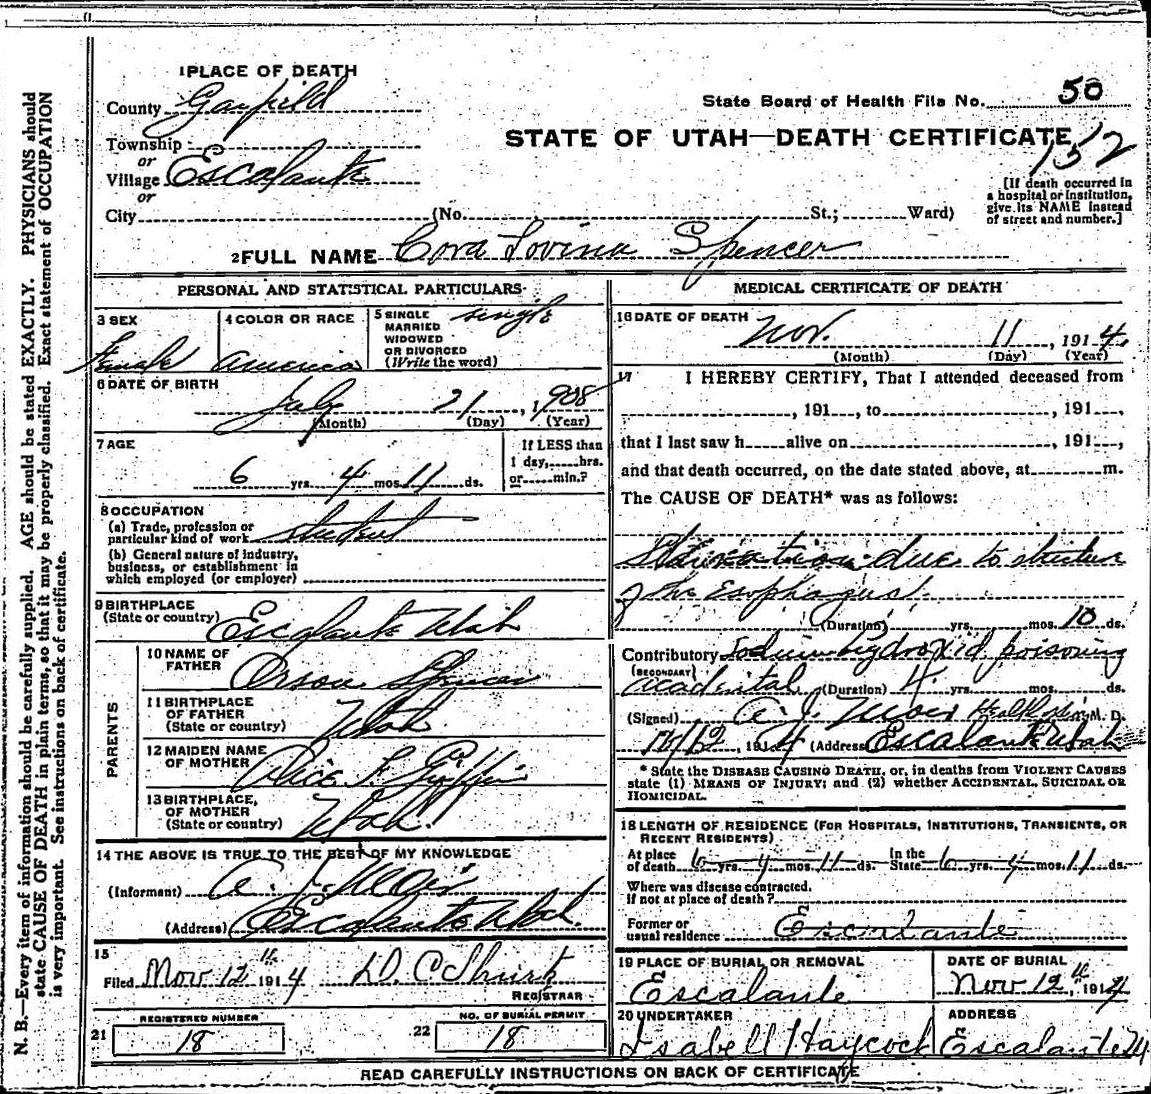 1 PLACE OF DEATH
County Garfield
State Board of Health File No. 50
STATE OF UTAH—DEATH CERTIFICATE
152
Township
or
Village Escalante
or
City (No. St.; Ward)
[If death occurred in
a hospital or institution,
give its NAME instead
of street and number.]
2 FULL NAME Cora Lovina Spencer
PERSONAL AND STATISTICAL PARTICULARS
3 SEX
Female
4 COLOR OR RACE
America
5 SINGLE
MARRIED
WIDOWED
OR DIVORCED
(Write the word)
single
6 DATE OF BIRTH
July 21, 1908
(Month) (Day) (Year)
7 AGE
6 yrs. 4 mos. 11 ds.
If LESS than
1 day, hrs.
or min.?
8 OCCUPATION
(a) Trade, profession or
particular kind of work student
(b) General nature of industry,
business, or establishment in
which employed (or employer)
9 BIRTHPLACE
(State or country) Escalante Utah
PARENTS
10 NAME OF
FATHER Orson Spencer
11 BIRTHPLACE
OF FATHER
(State or country) Utah
12 MAIDEN NAME
OF MOTHER Alice L Griffin
13 BIRTHPLACE,
OF MOTHER
(State or country) Utah
14 THE ABOVE IS TRUE TO THE BEST OF MY KNOWLEDGE
(Informant)
(Address) Escalante Utah
15
Filed Nov 12th 1914 D. C. Shurtz
REGISTRAR
REGISTERED NUMBER
21 18
NO. OF BURIAL PERMIT
22 18
MEDICAL CERTIFICATE OF DEATH
16 DATE OF DEATH
Nov. 11, 1914.
(Month) (Day) (Year)
17 I HEREBY CERTIFY, That I attended deceased from
, 191 , to , 191 ,
that I last saw h alive on , 191 ,
and that death occurred, on the date stated above, at m.
The CAUSE OF DEATH* was as follows:
Starvation due to stricture
of the Esophagus.
(Duration) yrs. mos. 10 ds.
Contributory Sodium hydroxid poisoning
(SECONDARY)
accidental (Duration) 4 yrs. mos. ds.
(Signed) M. D.
11/12, 1914 (Address) Escalante Utah
* State the DISEASE CAUSING DEATH, or, in deaths from VIOLENT CAUSES
state (1) MEANS OF INJURY; and (2) whether ACCIDENTAL, SUICIDAL OR
HOMICIDAL.
18 LENGTH OF RESIDENCE (FOR HOSPITALS, INSTITUTIONS, TRANSIENTS, OR
RECENT RESIDENTS)
At place
of death 6 yrs. 4 mos. 11 ds.
In the
State 6 yrs. 4 mos. 11 ds.
Where was disease contracted.
if not at place of death?
Former or
usual residence Escalante
19 PLACE OF BURIAL OR REMOVAL
Escalante
DATE OF BURIAL
Nov 12th, 1914
20 UNDERTAKER
Isabell Haycock
ADDRESS
Escalante
READ CAREFULLY INSTRUCTIONS ON BACK OF CERTIFICATE
N. B.—Every item of information should be carefully supplied. AGE should be stated EXACTLY. PHYSICIANS should
state CAUSE OF DEATH in plain terms, so that it may be properly classified. Exact statement of OCCUPATION
is very important. See instructions on back of certificate.